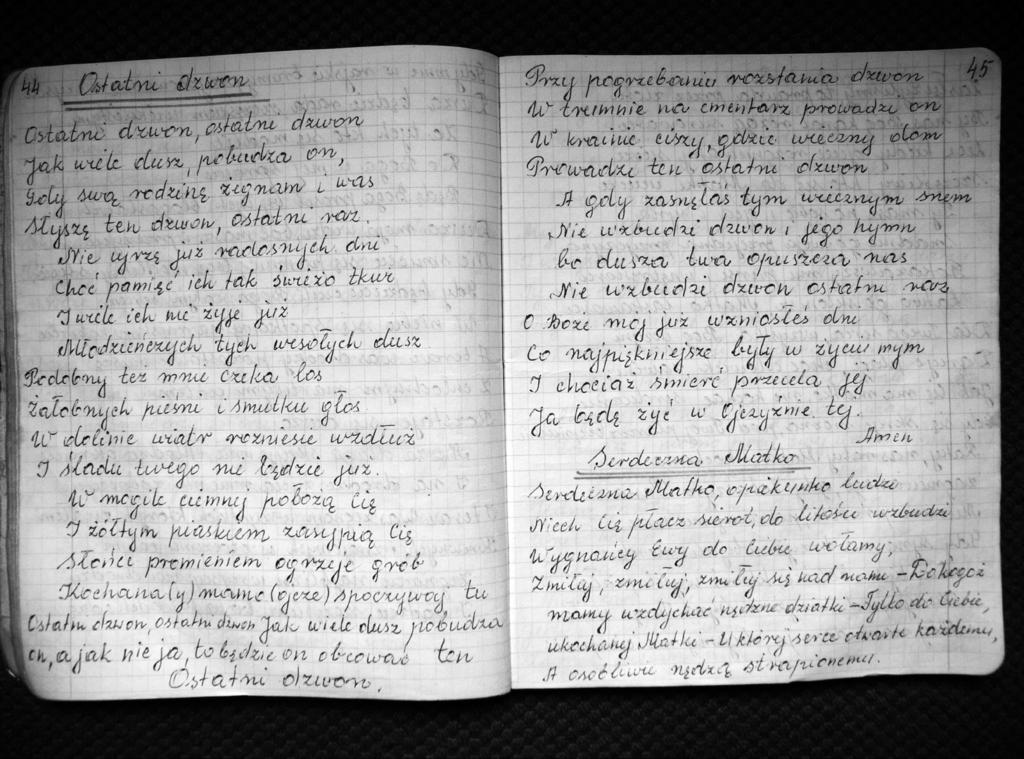 44
Ostatni dzwon
Ostatni dzwon, ostatni dzwon
Jak wiele dusz, pobudza on,
Gdy swą rodzinę żegnam i was
Słyszę ten dzwon, ostatni raz.
Nie ujrzę już radosnych dni
Choć pamięć ich tak świeżo tkwi
I wiele ich nie żyje już
Młodzieńczych tych wesołych dusz
Podobny też mnie czeka los
Żałobnych pieśni i smutku głos
W dolinie wiatr rozniesie wzdłuż
I śladu twego nie będzie już.
W mogile ciemnej położą Cię
I żółtym piaskiem zasypią Cię
Słońce promieniem ogrzeje grób
Kochana(y) mamo (ojcze) spoczywaj tu
Ostatni dzwon, ostatni dzwon Jak wiele dusz pobudza
on, a jak nie ja, to będzie on obcować ten
Ostatni dzwon.
45
Przy pogrzebaniu rozstania dzwon
W trumnie na cmentarz prowadzi on
W krainie ciszy, gdzie wieczny dom
Prowadzi ten ostatni dzwon
A gdy zasnęłaś tym wiecznym snem
Nie wzbudzi dzwon i jego hymn
bo dusza twa opuszcza nas
Nie wzbudzi dzwon ostatni raz
O Boże mój już wzniosłeś dni
Co najpiękniejsze były w życiu mym
I chociaż śmierć przecela jej
Ja będę żyć w Ojczyźnie tej.
Amen
Serdeczna Matko
Serdeczna Matko, opiekunko ludzi
Niech Cię płacz sierot, do litości wzbudzi
Wygnańcy Ewy do Ciebie wołamy,
Zmiłuj, zmiłuj, zmiłuj się nad nami – Do kogoż
mamy wzdychać nędzne dziatki – Tylko do Ciebie,
ukochanej Matki – U której serce otwarte każdemu,
A osobliwie nędzą strapionemu.